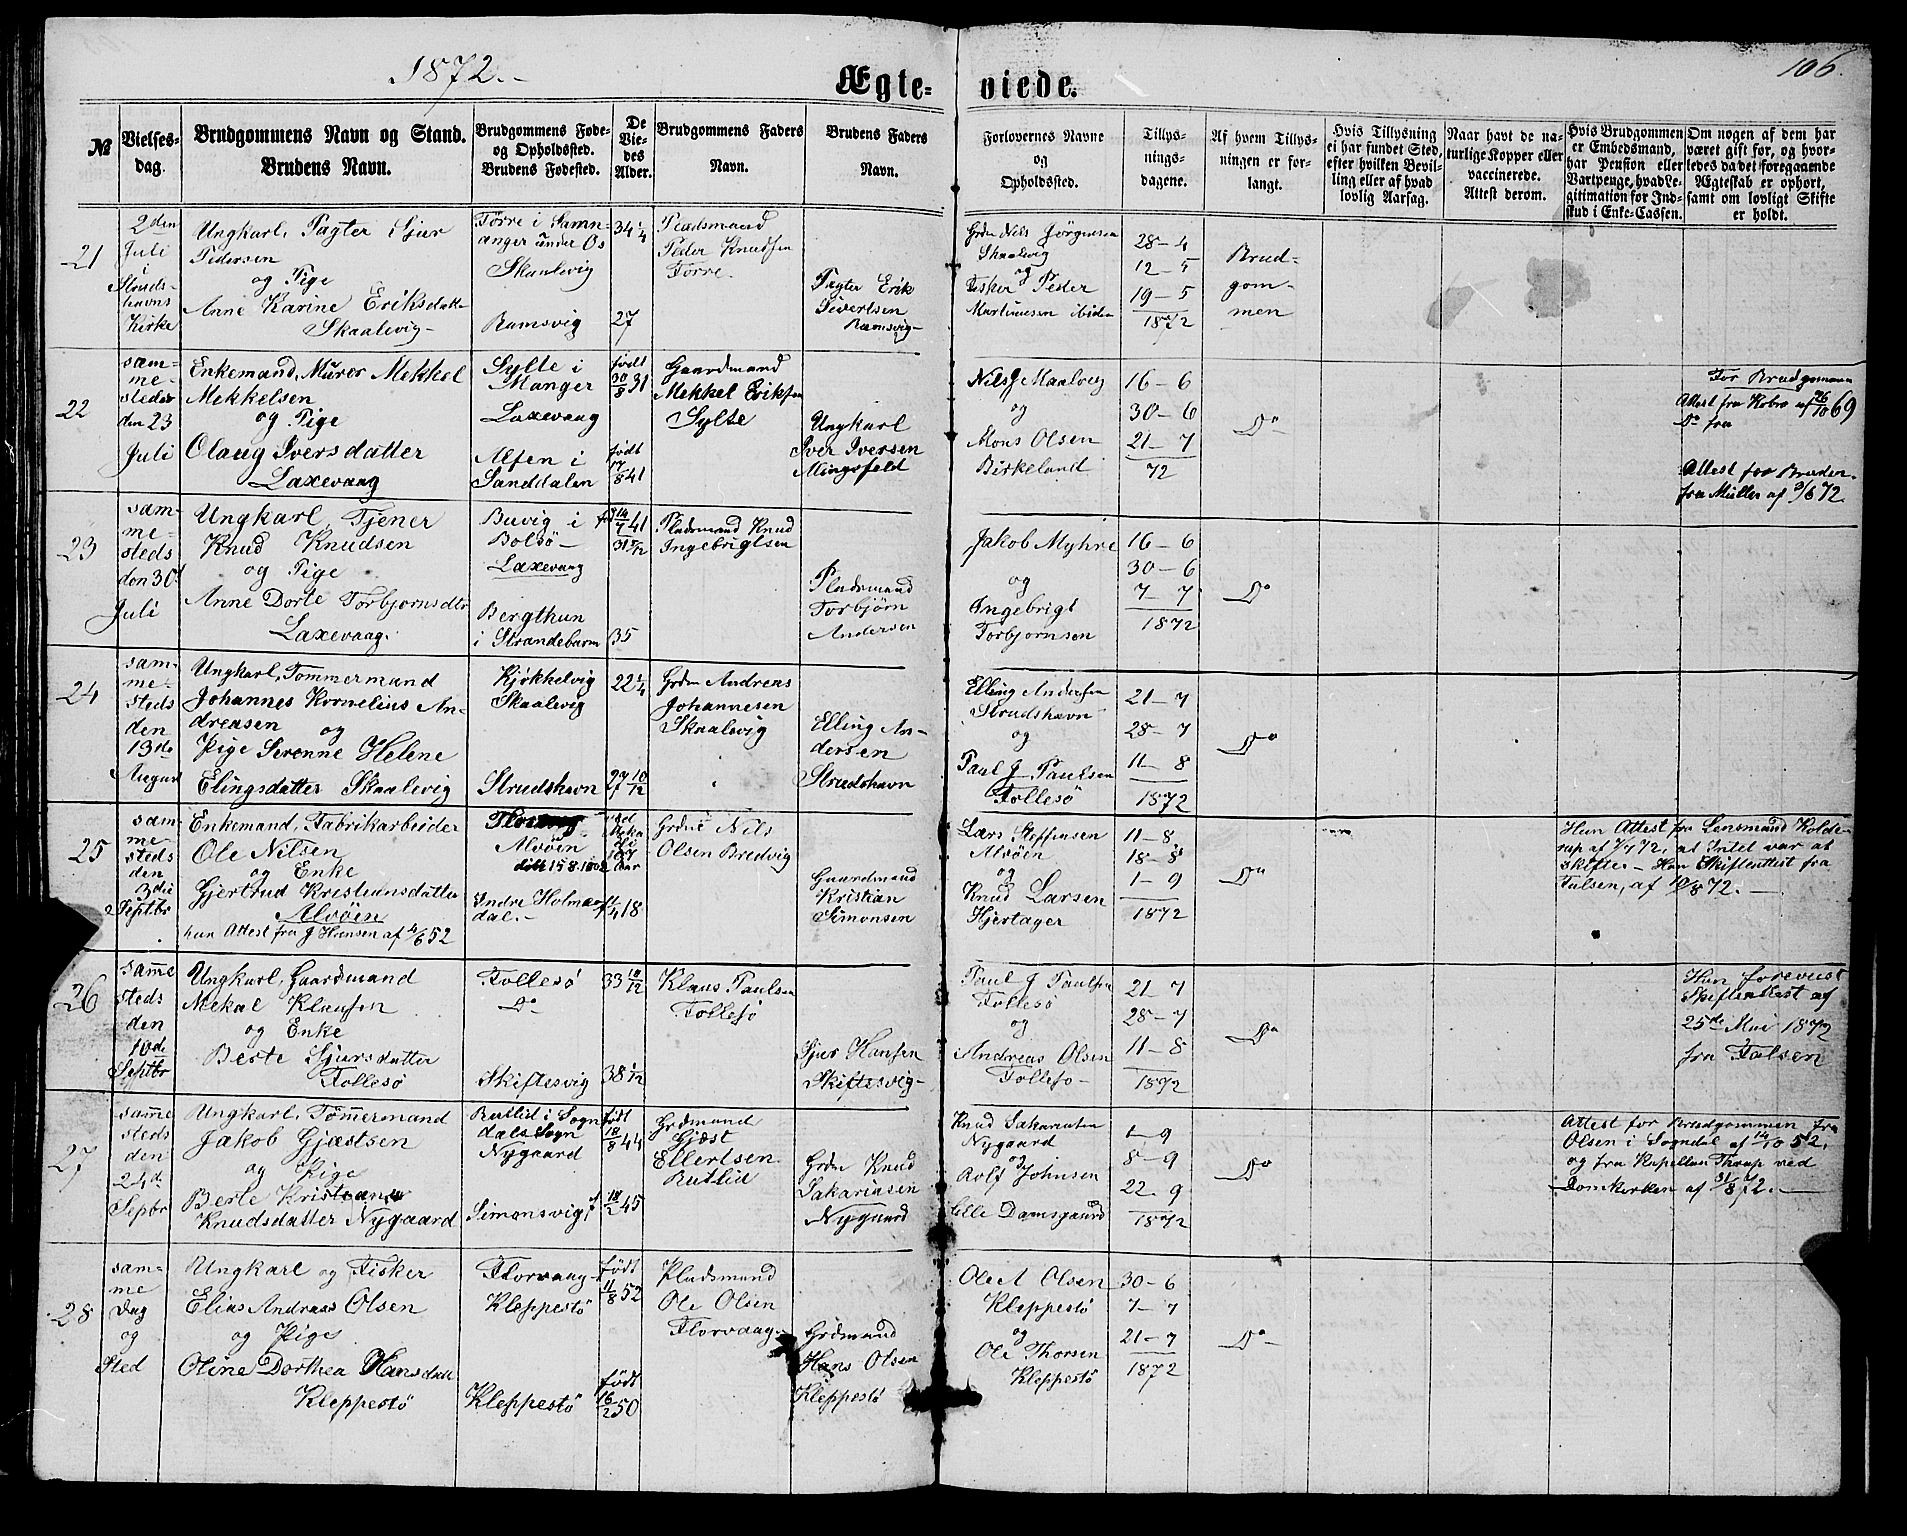 1872.
106.
Ægte=
viede.
№
Vielses-
dag.
Brudgommens Navn og Stand.
Brudens Navn.
Brudgommens Føde-
og Opholdssted.
Brudens Fødested.
De
Vie-
des
Alder.
Brudgommens Faders
Navn.
Brudens Faders
Navn.
Forlovernes Navne
og
Opholdssted.
Tillys-
nings-
dagene.
Af hvem Tillys-
ningen er for-
langt.
Hvis Tillysning
ei har fundet Sted,
efter hvilken Bevil-
ling eller af hvad
lovlig Aarsag.
Naar havt de na-
turlige Kopper eller
vaccinerede.
Attest derom.
Hvis Brudgommen
er Embedsmand,
har Pension eller
Vartpenge, hvad Le-
gitimation for Ind-
skud i Enke-Cassen.
Om nogen af dem har
været gift før, og hvor-
ledes da det foregaaende
Ægteskab er ophørt,
samt om lovligt Skifte
er holdt.
21
2den
Juli
i
Strus-
havns
Kirke
Ungkarl, Pagter Sjur
Pedersen
og Pige
Anne Karine Eriksdatter
Skaalevig
Tørre i Samn-
anger under Os
Skaalevig
Ramsvig
34 1/4
27
Pladsmand
Peder Knudsen
Tørre.
Pagter Erik
Sivertsen
Ramsvig
Grdm Nils Jörgensen
Skaalevig
og
Fisker Peder
Martinusen ibidem
28-4
12-5
19-5
1872
Brud-
gom-
men
22
sam-
me-
steds
den 23
Juli
Enkemand, Murer Mekkel
Mekkelsen
og Pige
Olaug Iversdatter
Laxevaag
Sylte i
Manger
Laxevaag
Alfen i
Sanddalen
født
30/8 31
født
17/8 41
Gaardmand
Mekkel Eriksen
Sylte
Ungkarl
Iver Iversen
Mingsfeld
Nils J Maalvig
og
Mons Olsen
Birkeland
16-6
30-6
21-7
72
Do
For Brudgommen
Attest fra Kobro af 26/10 69
Do fra
Attest for Bruden
fra Müller af 3/6 72.
23
sam-
me-
steds
den 30te
Juli
Ungkarl, Tjener
Knud Knudsen
og Pige
Anne Dorte Torbjornsdtr
Laxevaag.
Buvig i
Bolsö
Laxevaag
Bergthun
i Strandebarm
fd 14/7 41
31 1/12
35
Pladsmand Knud
Ingebrigtsen
Pladsmand
Torbjørn
Andersen
Jakob Myhre
og
Ingebrigt
Torbjornsen
16-6
30-6
7-7
1872
Do
24
sam-
me-
steds
den
13de
August
Ungkarl, Tømmermand
Johannes Kornelius An-
dreasen
og
Pige Serenne Helene
Elingsdatter Skaalevig
Kjøkkelvig
Skaalevig
Strudshavn
22 1/4
27 10/12
Grdm Andreas
Johannesen
Skaalevig
Elling An-
dersen
Strudshavn
Elling Andersen
Strudshavn
og
Paul J Paulsen
Follesö
21-7
28-7
11-8
1872
Do
25
sam-
me
steds
den
3die
Septbr
Enkemand, Fabrikarbeider
Ole Nilsen
og Enke
Gjertrud Kristiansdatter
Alvöen
hun Attest fra J Hansen af 4/6 52
Alvöen
Indre Holme-
dal.
1/4 18
Grdmd Nils
Olsen Bredvig
Gaardmand
Kristian
Simonsen
Lars Steffensen
Alvöen
og
Knud Larsen
Hjertager
11-8
18-8
1-9
1872
Do
Hun Attest fra Lensmand Kolde-
rup af 7/7 72, at Intet var at
skifte - Han Skifteattest fra
Falsen, af 10/8 72.
26
samme
steds
den
10de
Septbr
Ungkarl, Gaardmand
Mekal Klausen
og Enke
Berte Sjursdatter
Follesö
Follesö
Do
Skiftesvig
33 10/12
38 1/12
Klaus Paulsen
Follesö
Sjur Hansen
Skiftesvig
Paul J Paulsen
Follesö
og
Andreas Olsen
Follesö
21-7
28-7
11-8
1872
Do
Hun forevist
Skifteattest af
25de Mai 1872
fra Falsen
27
samme
steds
den
24de
Sepbr
Ungkarl, Tømmermand
Jakob Gjæstsen
og Pige
Berte Kristianna
Knudsdatter Nygaard
Rutlid i Sogn
dals Sogn
Nygaard
Simonsvig
født
18/8 44
f 18/2 45
Grdmand
Gjæst
Ellertsen
Rutlid
Grdm Knud
Sakariasen
Nygaard
Knud Sakariasen
Nygaard
og
Rolf Johnsen
Lille Damsgaard
1-9
8-9
22-9
1872
Do
Attest for Brudgommen fra
Olsen i Sogndal af 14/10 52,
og fra Kapellan Thrap ved
Domkirken af 31/8 72.
28
sam-
me
Dag
og
Sted
Ungkarl og Fisker
Elias Andreas Olsen
og Pige
Oline Dorthea Hansdatt
Kleppestö
Florvaag
Kleppestö
Kleppestö
født
11/8 52
født
16/2 50
Pladsmand
Ole Olsen
Florvaag
Grdmand
Hans Olsen
Kleppestö
Ole A Olsen
Kleppestö
og
Ole Thorsen
Kleppestö
30-6
7-7
21-7
1872
Do